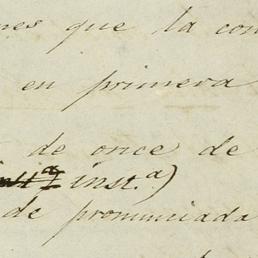 nes que la con
en primera
de once de
inst.ª)
de pronunciada